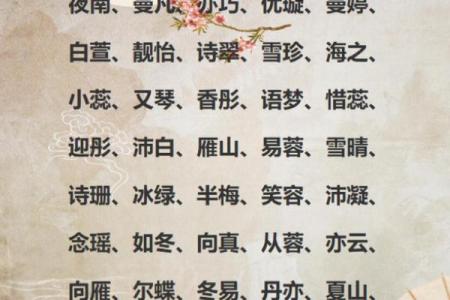 夜南、曼凡、亦巧、优璇、曼婷、
白萱、靓怡、诗翠、雪珍、海之、
小蕊、又琴、香彤、语梦、惜蕊、
迎彤、沛白、雁山、易蓉、雪晴、
诗珊、冰绿、半梅、笑容、沛凝、
念瑶、如冬、向真、从蓉、亦云、
向雁、尔蝶、冬易、丹亦、夏山、